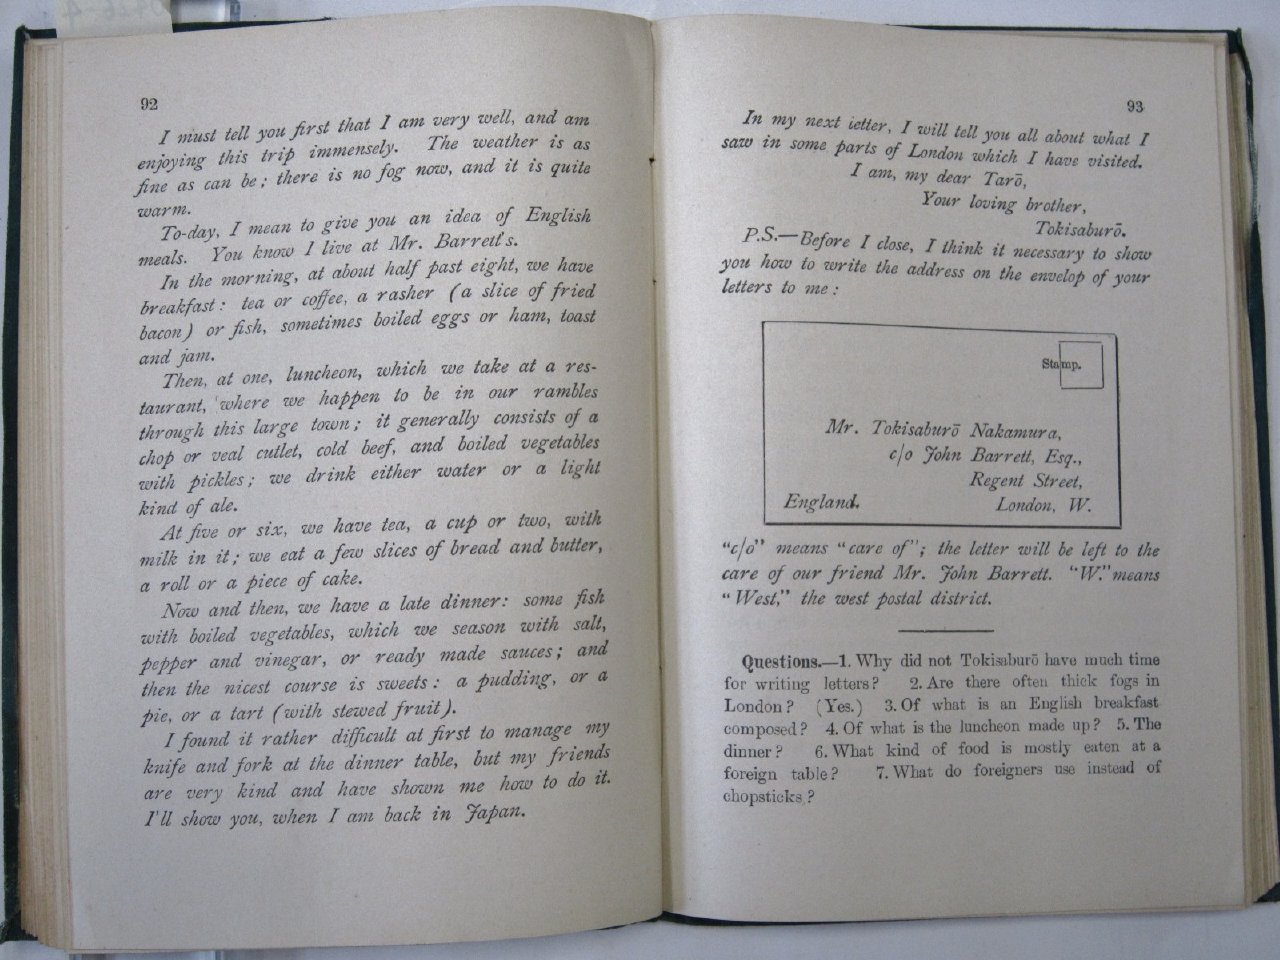 92
I must tell you first that I am very well, and am
enjoying this trip immensely. The weather is as
fine as can be; there is no fog now, and it is quite
warm.
To-day, I mean to give you an idea of English
meals. You know I live at Mr. Barrett's.
In the morning, at about half past eight, we have
breakfast: tea or coffee, a rasher (a slice of fried
bacon) or fish, sometimes boiled eggs or ham, toast
and jam.
Then, at one, luncheon, which we take at a res-
taurant, where we happen to be in our rambles
through this large town; it generally consists of a
chop or veal cutlet, cold beef, and boiled vegetables
with pickles; we drink either water or a light
kind of ale.
At five or six, we have tea, a cup or two, with
milk in it; we eat a few slices of bread and butter,
a roll or a piece of cake.
Now and then, we have a late dinner: some fish
with boiled vegetables, which we season with salt,
pepper and vinegar, or ready made sauces; and
then the nicest course is sweets: a pudding, or a
pie, or a tart (with stewed fruit).
I found it rather difficult at first to manage my
knife and fork at the dinner table, but my friends
are very kind and have shown me how to do it.
I'll show you, when I am back in Japan.
93
In my next letter, I will tell you all about what I
saw in some parts of London which I have visited.
I am, my dear Tarō,
Your loving brother,
Tokisaburō.
P.S.—Before I close, I think it necessary to show
you how to write the address on the envelop of your
letters to me:
Stamp.
Mr. Tokisaburō Nakamura,
c/o John Barrett, Esq.,
Regent Street,
England. London, W.
"c/o" means "care of"; the letter will be left to the
care of our friend Mr. John Barrett. "W." means
"West," the west postal district.
Questions.—1. Why did not Tokisaburō have much time
for writing letters? 2. Are there often thick fogs in
London? (Yes.) 3. Of what is an English breakfast
composed? 4. Of what is the luncheon made up? 5. The
dinner? 6. What kind of food is mostly eaten at a
foreign table? 7. What do foreigners use instead of
chopsticks?